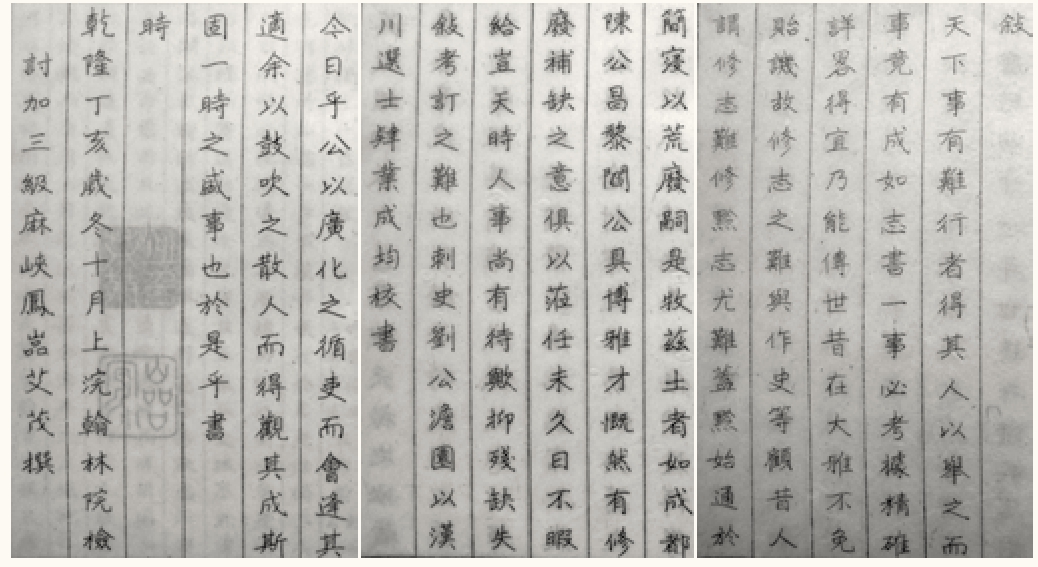 敍
天下事有難行者得其人以舉之而
事竟有成如志書一事必考據精確
詳畧得宜乃能傳世昔在大雅不免
貽譏故修志之難與作史等顧昔人
謂修志難修黙志尤難蓋黙始通於
簡寖以荒廢嗣是牧茲土者如成都
陳公昌黎閻公具博雅才慨然有修
廢補缺之意俱以蒞任未久日不暇
給豈天時人事尚有待歟抑殘缺失
敍考訂之難也刺史劉公澹園以漢
川選士肄業成均校書
今日乎公以廣化之循吏而會逢其
適余以鼓吹之散人而得觀其成斯
固一時之盛事也於是乎書
時
乾隆丁亥歲冬十月上浣翰林院檢
討加三級麻峽鳳嵓艾茂撰